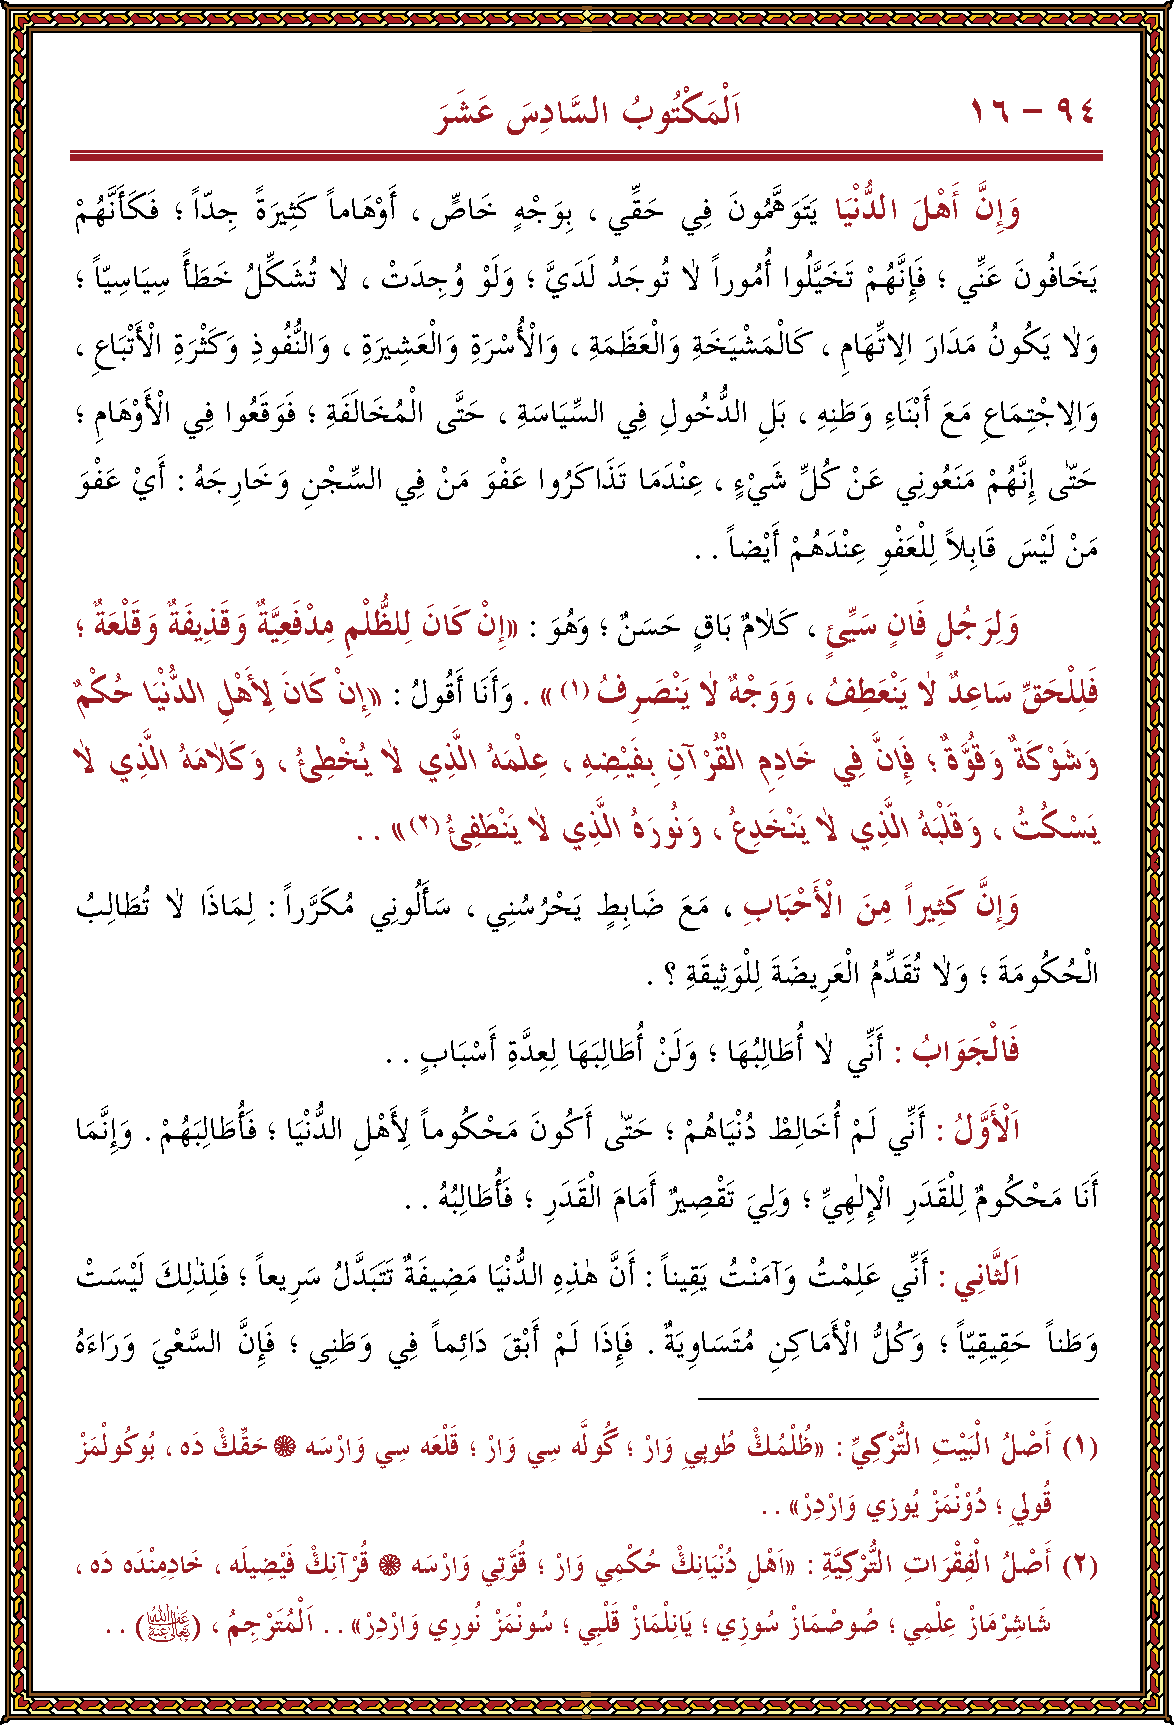 ٩٤ – ١٦ اَلْمَكْتُوبُ السَّادِسَ عَشَرَ
وَإِنَّ أَهْلَ الدُّنْيَا يَتَوَهَّمُونَ فِي حَقِّي ، بِوَجْهٍ خَاصٍّ ، أَوْهَاماً كَثِيرَةً جِدّاً ؛ فَكَأَنَّهُمْ
يَخَافُونَ عَنِّي ؛ فَإِنَّهُمْ تَخَيَّلُوا أُمُوراً لَا تُوجَدُ لَدَيَّ ؛ وَلَوْ وُجِدَتْ ، لَا تُشَكِّلُ خَطَأً سِيَاسِيّاً ؛
وَلَا يَكُونُ مَدَارَ الِاتِّهَامِ ، كَالْمَشْيَخَةِ وَالْعَظَمَةِ ، وَالْأُسْرَةِ وَالْعَشِيرَةِ ، وَالنُّفُوذِ وَكَثْرَةِ الْأَتْبَاعِ ،
وَالِاجْتِمَاعِ مَعَ أَبْنَاءِ وَطَنِهِ ، بَلِ الدُّخُولِ فِي السِّيَاسَةِ ، حَتَّى الْمُخَالَفَةِ ؛ فَوَقَعُوا فِي الْأَوْهَامِ ؛
حَتّٰى إِنَّهُمْ مَنَعُونِي عَنْ كُلِّ شَيْءٍ ، عِنْدَمَا تَذَاكَرُوا عَفْوَ مَنْ فِي السِّجْنِ وَخَارِجَهُ : أَيْ عَفْوَ
مَنْ لَيْسَ قَابِلاً لِلْعَفْوِ عِنْدَهُمْ أَيْضاً . .
وَلِرَجُلٍ فَانٍ سَيِّئٍ ، كَلَامٌ بَاقٍ حَسَنٌ ؛ وَهُوَ : «إِنْ كَانَ لِلظُّلْمِ مِدْفَعِيَّةٌ وَقَذِيفَةٌ وَقَلْعَةٌ ؛
فَلِلْحَقِّ سَاعِدٌ لَا يَنْعَطِفُ ، وَوَجْهٌ لَا يَنْصَرِفُ (١) » . وَأَنَا أَقُولُ : «إِنْ كَانَ لِأَهْلِ الدُّنْيَا حُكْمٌ
وَشَوْكَةٌ وَقُوَّةٌ ؛ فَإِنَّ فِي خَادِمِ الْقُرْآنِ بِفَيْضِهِ ، عِلْمَهُ الَّذِي لَا يُخْطِئُ ، وَكَلَامَهُ الَّذِي لَا
يَسْكُتُ ، وَقَلْبَهُ الَّذِي لَا يَنْخَدِعُ ، وَنُورَهُ الَّذِي لَا يَنْطَفِئُ (٢)» . .
وَإِنَّ كَثِيراً مِنَ الْأَحْبَابِ ، مَعَ ضَابِطٍ يَحْرُسُنِي ، سَأَلُونِي مُكَرَّراً : لِمَاذَا لَا تُطَالِبُ
الْحُكُومَةَ ؛ وَلَا تُقَدِّمُ الْعَرِيضَةَ لِلْوَثِيقَةِ ؟ .
فَالْجَوَابُ : أَنِّي لَا أُطَالِبُهَا ؛ وَلَنْ أُطَالِبَهَا لِعِدَّةِ أَسْبَابٍ . .
اَلْأَوَّلُ : أَنِّي لَمْ أُخَالِطْ دُنْيَاهُمْ ؛ حَتّٰى أَكُونَ مَحْكُوماً لِأَهْلِ الدُّنْيَا ؛ فَأُطَالِبَهُمْ . وَإِنَّمَا
أَنَا مَحْكُومٌ لِلْقَدَرِ الْإِلٰهِيِّ ؛ وَلِيَ تَقْصِيرٌ أَمَامَ الْقَدَرِ ؛ فَأُطَالِبُهُ . .
اَلثَّانِي : أَنِّي عَلِمْتُ وَآمَنْتُ يَقِيناً : أَنَّ هٰذِهِ الدُّنْيَا مَضِيفَةٌ تَتَبَدَّلُ سَرِيعاً ؛ فَلِذٰلِكَ لَيْسَتْ
وَطَناً حَقِيقِيّاً ؛ وَكُلُّ الْأَمَاكِنِ مُتَسَاوِيَةٌ . فَإِذَا لَمْ أَبْقَ دَائِماً فِي وَطَنِي ؛ فَإِنَّ السَّعْيَ وَرَاءَهُ
(١) أَصْلُ الْبَيْتِ التُّرْكِيِّ : «ظُلْمُكْ طُوپِي وَارْ ؛ گُولَّه سِي وَارْ ؛ قَلْعَه سِي وَارْسَه ۞ حَقِّكْ دَه ، بُوكُولْمَزْ
قُولِي ؛ دُوْنْمَزْ يُوزِي وَارْدِرْ» . .
(٢) أَصْلُ الْفِقْرَاتِ التُّرْكِيَّةِ : «اَهْلِ دُنْيَانِكْ حُكْمِي وَارْ ؛ قُوَّتِي وَارْسَه ۞ قُرْآنِكْ فَيْضِيلَه ، خَادِمِنْدَه دَه ،
شَاشِرْمَازْ عِلْمِي ؛ صُوصْمَازْ سُوزِي ؛ يَانِلْمَازْ قَلْبِي ؛ سُونْمَزْ نُورِي وَارْدِرْ» . . اَلْمُتَرْجِمُ ، () . .